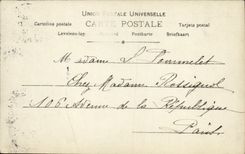 UNION POSTALE UNIVERSELLE
CARTE POSTALE
Cartolina postale Tarjeta postal
Levelező-lap Postkarte Briefkaart
Madame L. Pommelet
Chez Madame Rossignol
106 Avenue de la République
Paris